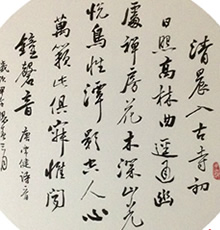 清晨入古寺初
日照高林曲逕通幽
處禪房花木深山光
悅鳥性潭影空人心
萬籟此俱寂惟聞
鐘磬音 唐常健詩
歲次甲午